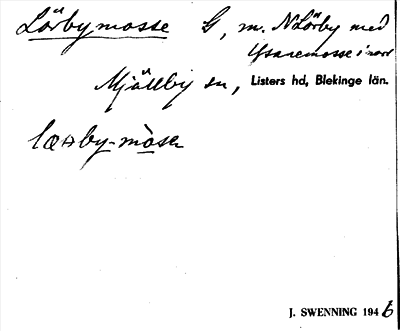 Lörbymosse G, m. N Lörby med
Ysanemosse i norr
Mjällby sn, Listers hd, Blekinge län.
J. SWENNING 1946